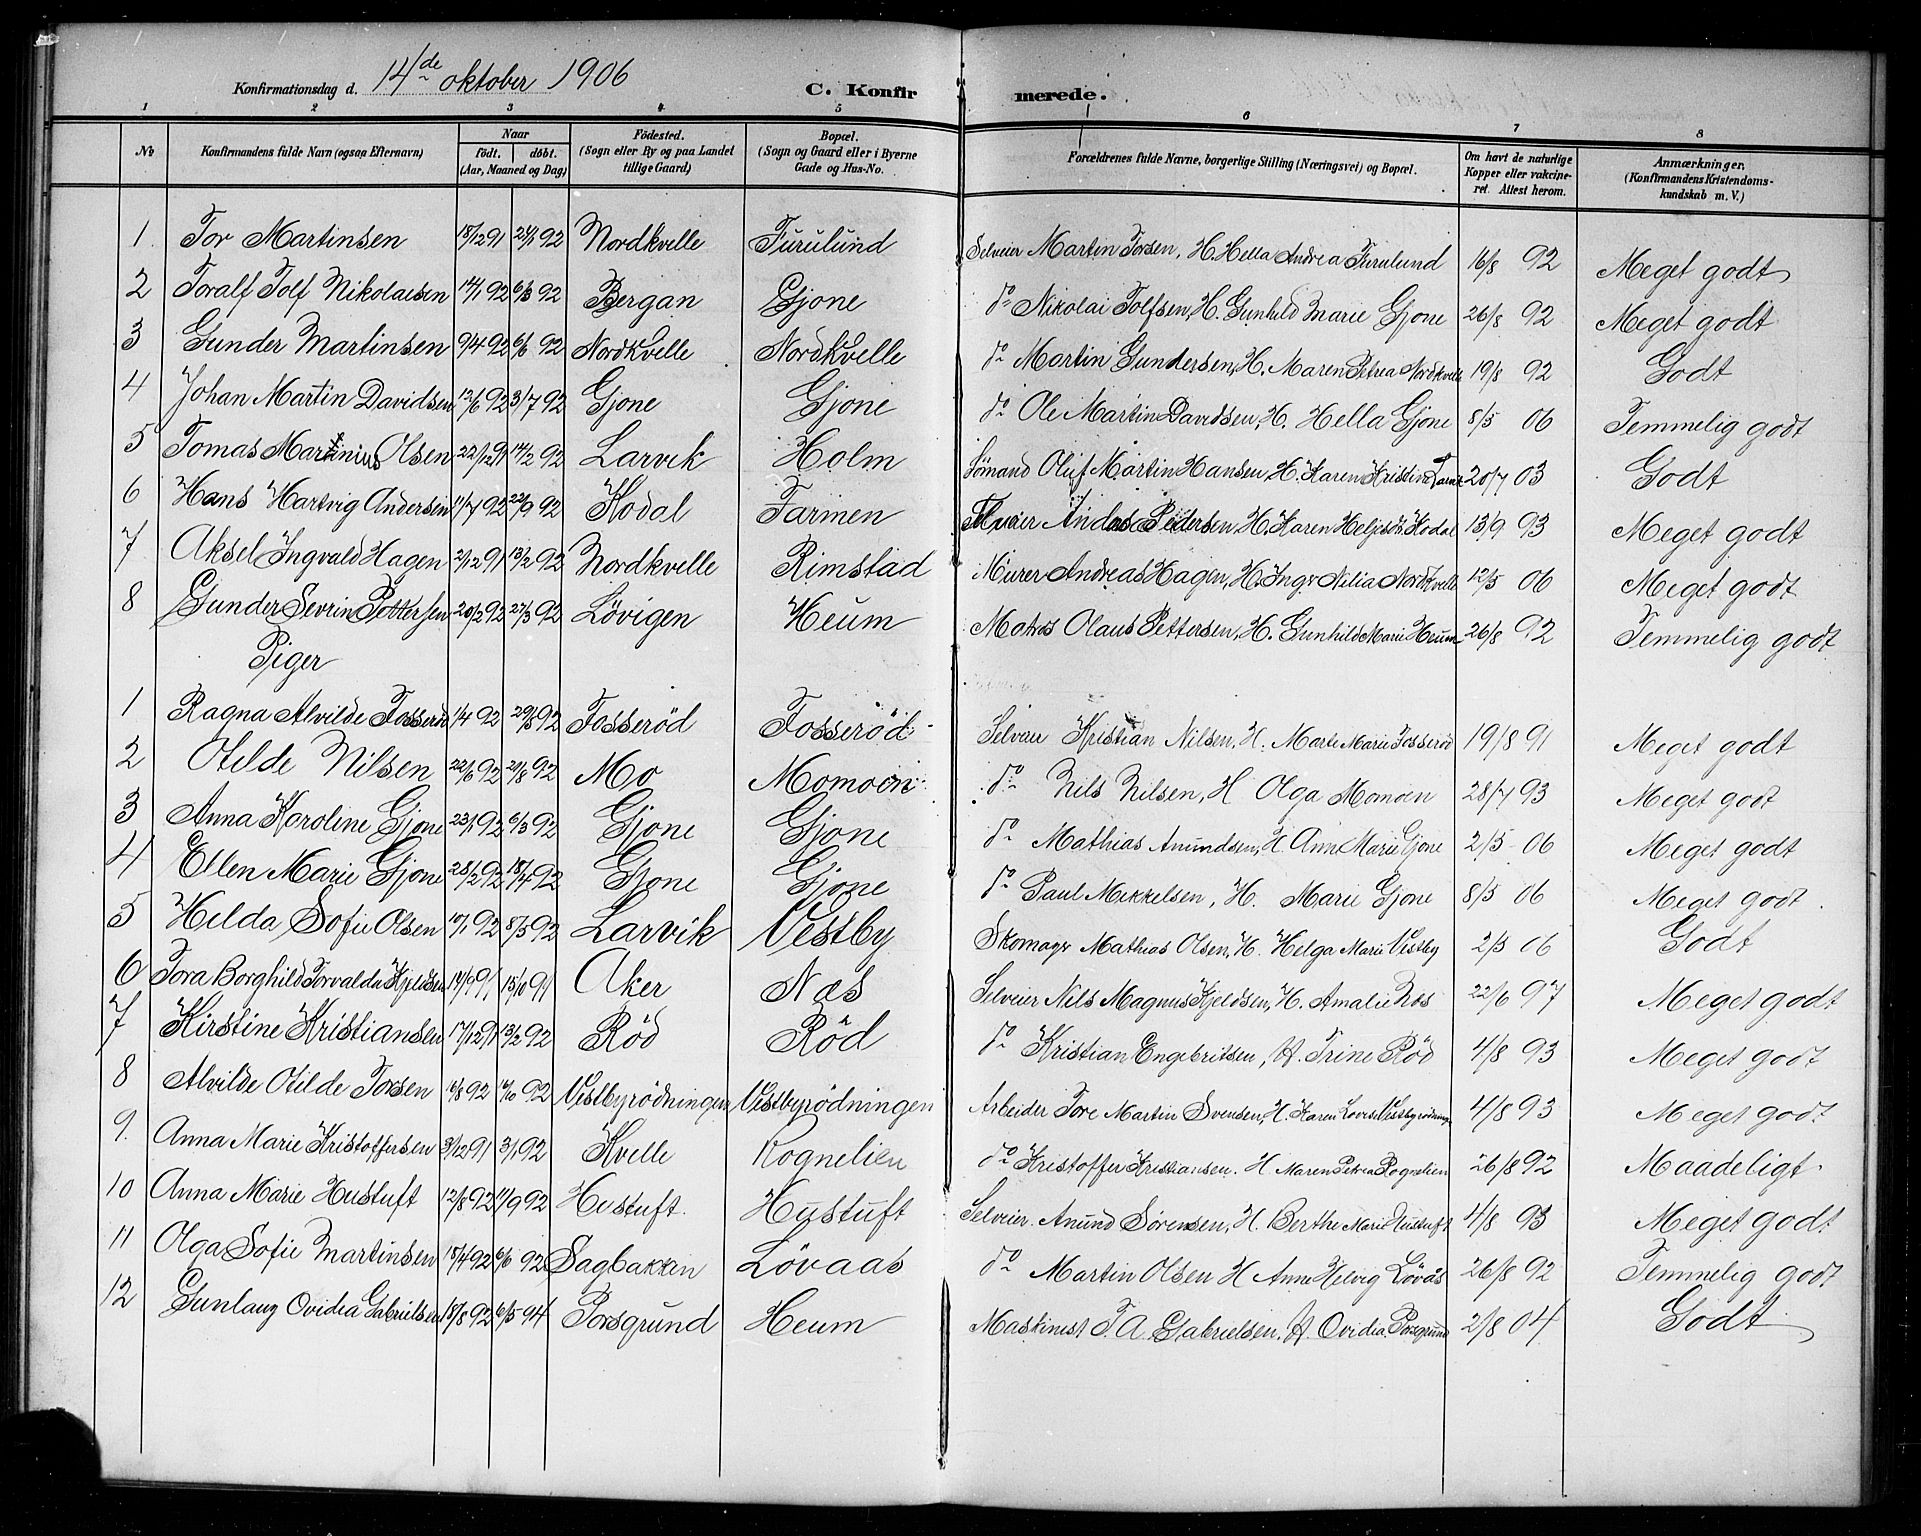 Konfirmationsdag d. 14de oktober 1906
C. Konfirmerede.
1 2 3 4 5 6 7 8
No
Konfirmandens fulde Navn (ogsaa Efternavn)
Naar
födt. | döbt.
(Aar, Maaned og Dag)
Födested.
(Sogn eller By og paa Landet tillige Gaard)
Bopæl.
(Sogn og Gaard eller i Byerne Gade og Hus-No.
Forældrenes fulde Navne, borgerlige Stilling (Næringsvei) og Bopæl.
Om havt de naturlige Kopper eller vakcineret. Attest herom.
Anmærkninger.
(Konfirmandens Kristendomskundskab m. V.)
1 Tor Martinsen 18/12 91 24/1 92 Nordkvelle Furulund Selveier Martin Torsen, H. Hella Andrea Furulund 16/8 92 Meget godt
2 Toralf Tolf Nikolaisen 14/1 92 6/3 92 Bergan Gjone do Nikolai Tolfsen, H. Gunhild Marie Gjone 26/8 92 Meget godt
3 Gunder Martinsen 9/4 92 6/6 92 Nordkvelle Nordkvelle do Martin Gundersen, H. Maren Petrea Nordkvelle 19/8 92 Godt
4 Johan Martin Davidsen 12/6 92 31/7 92 Gjone Gjone do Ole Martin Davidsen, H. Hella Gjone 8/5 06 Temmelig godt
5 Tomas Martinius Olsen 22/12 91 14/2 92 Larvik Holm Sömand Oluf Martin Hansen, H. Karen Kristine Larvik 20/7 03 Godt
6 Hans Hartvig Andersen 11/7 92 22/9 92 Kodal Farmen Selveier Andreas Pedersen, H. Karen Kodal 13/9 93 Meget godt
7 Aksel Ingvald Hagen 2/12 91 13/2 92 Nordkvelle Rimstad Murer Andreas Hagen, H. Ingr. Nilia Nordkvelle 12/5 06 Meget godt
8 Gunder Sevrin Pettersen 20/2 92 27/3 92 Lövigen Heum Matros Olaus Pettersen, H. Gunhild Marie Heum 26/8 92 Temmelig godt
Piger
1 Ragna Alvilde Fosseröd 1/4 92 29/5 92 Fosseröd Fosseröd Selveier Kristian Nilsen, H. Marte Marie Fosseröd 19/8 91 Meget godt
2 Otilde Nilsen 22/6 92 21/8 92 Mo Momoen do Nils Nilsen, H Olga Momoen 28/7 93 Meget godt
3 Anna Karoline Gjone 23/1 92 6/3 92 Gjone Gjone do Mathias Anundsen, H. Ann Marie Gjone 2/5 06 Meget godt
4 Ellen Marie Gjone 28/2 92 18/4 92 Gjone Gjone do Paul Mikkelsen, H. Marie Gjone 8/5 06 Meget godt
5 Hilda Sofie Olsen 10/1 92 8/5 92 Larvik Vestby Skomager Mathias Olsen, H. Helga Marie Vestby 2/5 06 Godt
6 Tora Borghild Torvalda Kjeldsen 14/9 91 15/10 91 Aker Næs Selveier Nils Magnus Kjeldsen, H. Amalie Næs 22/6 97 Meget godt
7 Kirstine Kristiansen 17/12 91 13/2 92 Röd Röd do Kristian Engebritsen, H Trine Röd 4/8 93 Meget godt
8 Alvilde Otilde Torsen 16/8 92 16/10 92 Vestbyrödningen Vestbyrödningen Arbeider Tore Martin Svensen, H. Karen Lovise Vestbyrödningen 4/8 93 Meget godt
9. Anna Marie Kristoffersen 3/12 91 3/1 92 Kvelle Rognelien do Kristoffer Kristiansen. H Maren Petrea Rognelien 26/8 92 Maadeligt
10 Anna Marie Hustuft 12/8 92 11/9 92 Hustuft Hustuft Selveier Anund Sörensen, H. Berthe Marie Hustuft 4/8 93 Meget godt
11 Olga Sofie Martinsen 18/4 92 6/6 92 Sagbakken Lövaas do Martin Olsen H Anne Helvig Lövås 26/8 92 Temmelig godt
12 Gunlaug Ovidia Gabrielsen 18/8 92 6/5 94 Porsgrund Heum Maskinist T A Gabrielsen, H Ovidia Porsgrund 2/8 04 Godt